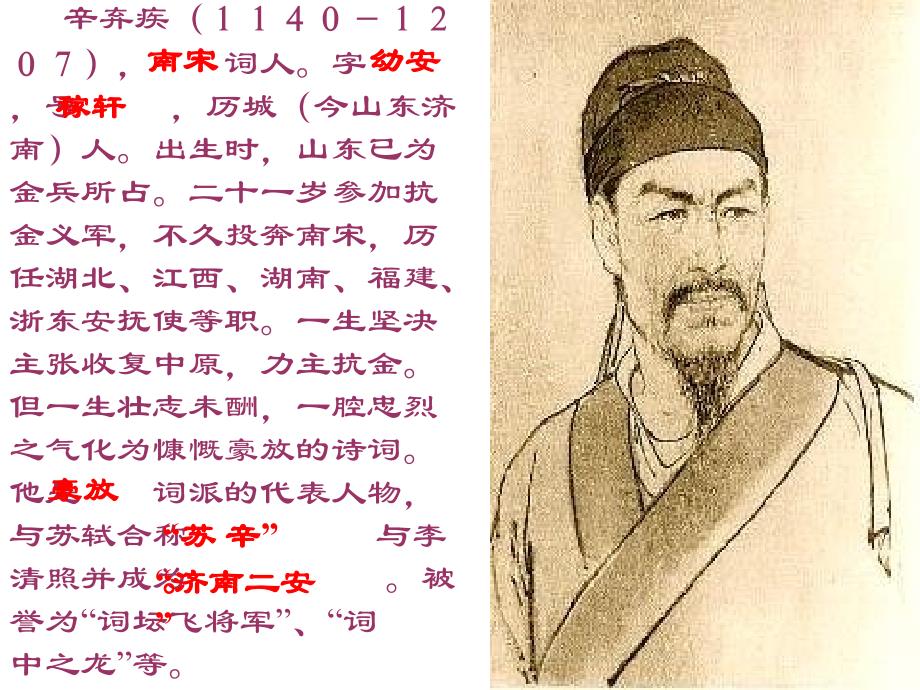 辛弃疾（１１４０－１２
０７），南宋词人。字幼安
，号稼轩，历城（今山东济
南）人。出生时，山东已为
金兵所占。二十一岁参加抗
金义军，不久投奔南宋，历
任湖北、江西、湖南、福建、
浙东安抚使等职。一生坚决
主张收复中原，力主抗金。
但一生壮志未酬，一腔忠烈
之气化为慷慨豪放的诗词。
他是豪放词派的代表人物，
与苏轼合称“苏 辛”与李
清照并成为“济南二安”。被
誉为“词坛飞将军”、“词
中之龙”等。